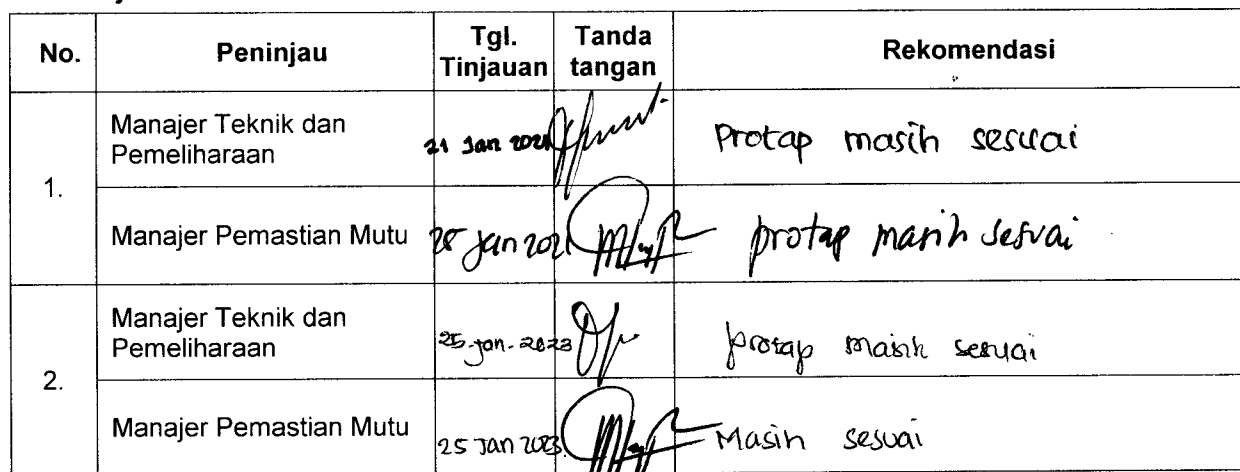 No. Peninjau Tgl. Tinjauan Tanda tangan Rekomendasi
1.
Manajer Teknik dan Pemeliharaan 21 Jan 2021 Protap masih sesuai
Manajer Pemastian Mutu 25 Jan 2021 protap masih sesuai
2.
Manajer Teknik dan Pemeliharaan 25-jan-2023 protap masih sesuai
Manajer Pemastian Mutu 25 Jan 2023 Masih sesuai